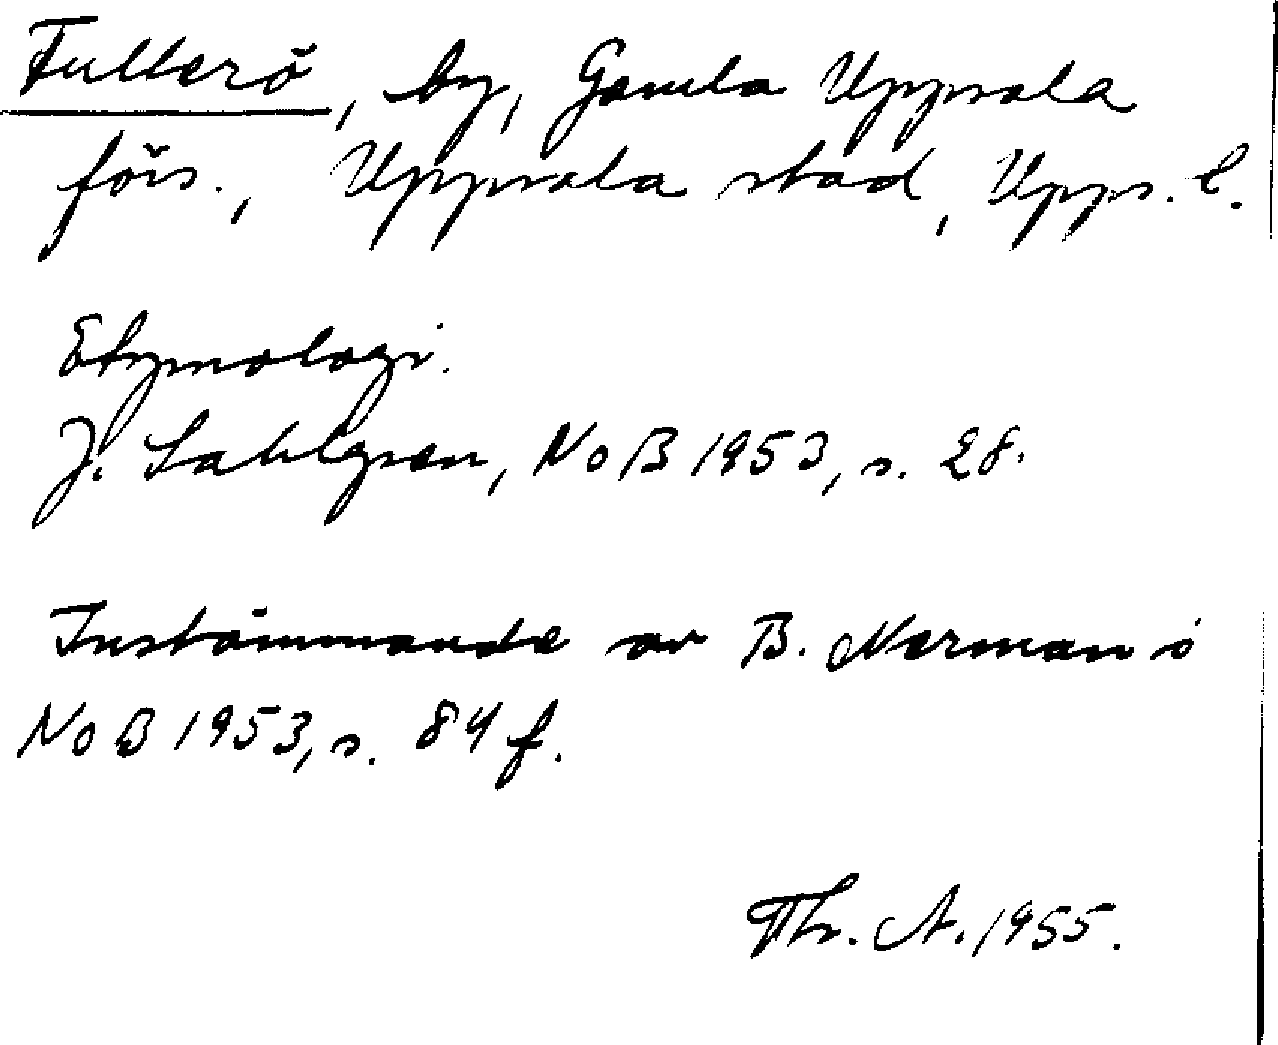 Fullerö, by, Gamla Uppsala
förs., Uppsala stad, Upps. l.
Etymologi.
J. Sahlgren, NoB 1953, s. 28.
Instämmande av B. Nerman i
NoB 1953, s. 84 f.
Th. A. 1955.